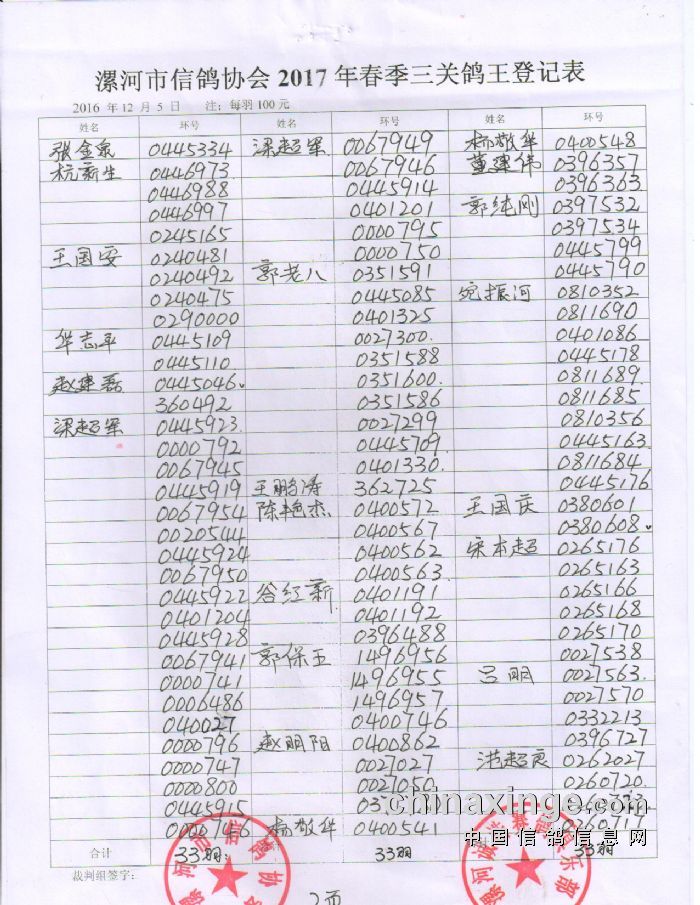 漯河市信鸽协会 2017 年春季三关鸽王登记表
2016 年 12 月 5 日 注：每羽 100 元
姓名 环号 姓名 环号 姓名 环号
张金泉 0445334 梁超军 0067949 杨敬华 0400548
杭新生 0446973 0067946 董建伟 0396357
0446988 0445914 0396363
0446997 0401201 郭纯刚 0397532
0245165 0000795 0397534
王国安 0240481 0000750 0445799
0240492 郭老八 0351591 0445790
0240475 0445085 宛振河 0810352
0290000 0401325 0811690
华志平 0445109 0027300 0401086
0445110 0351588 0445178
赵建磊 0445046 0351600 0811689
360492 0351586 0811685
梁超军 0445923 0027299 0810356
0000792 0445709 0445163
0067945 0401330 0811684
0445919 王鹏涛 362725 0445176
0067954 陈艳杰 0400572 王国庆 0380601
0020544 0400567 0380608
0445924 0400562 宋本超 0265176
0067950 0400563 0265163
0445922 谷红新 0401191 0265166
0401204 0401192 0265168
0445928 0396488 0265170
0067941 郭保玉 1496956 0027538
0000741 1496955 吕明 0027563
0006486 1496957 0027570
040027 0400746 0332213
0000796 赵明阳 0400862 0396727
0000747 0027027 洪超良 0262027
0000800 0027050 0260720
0445915
0000746 杨敬华 0400541 0260717
合计 33羽 33羽 33羽
裁判组签字：
2页
chinaxinge.com
中国信鸽信息网